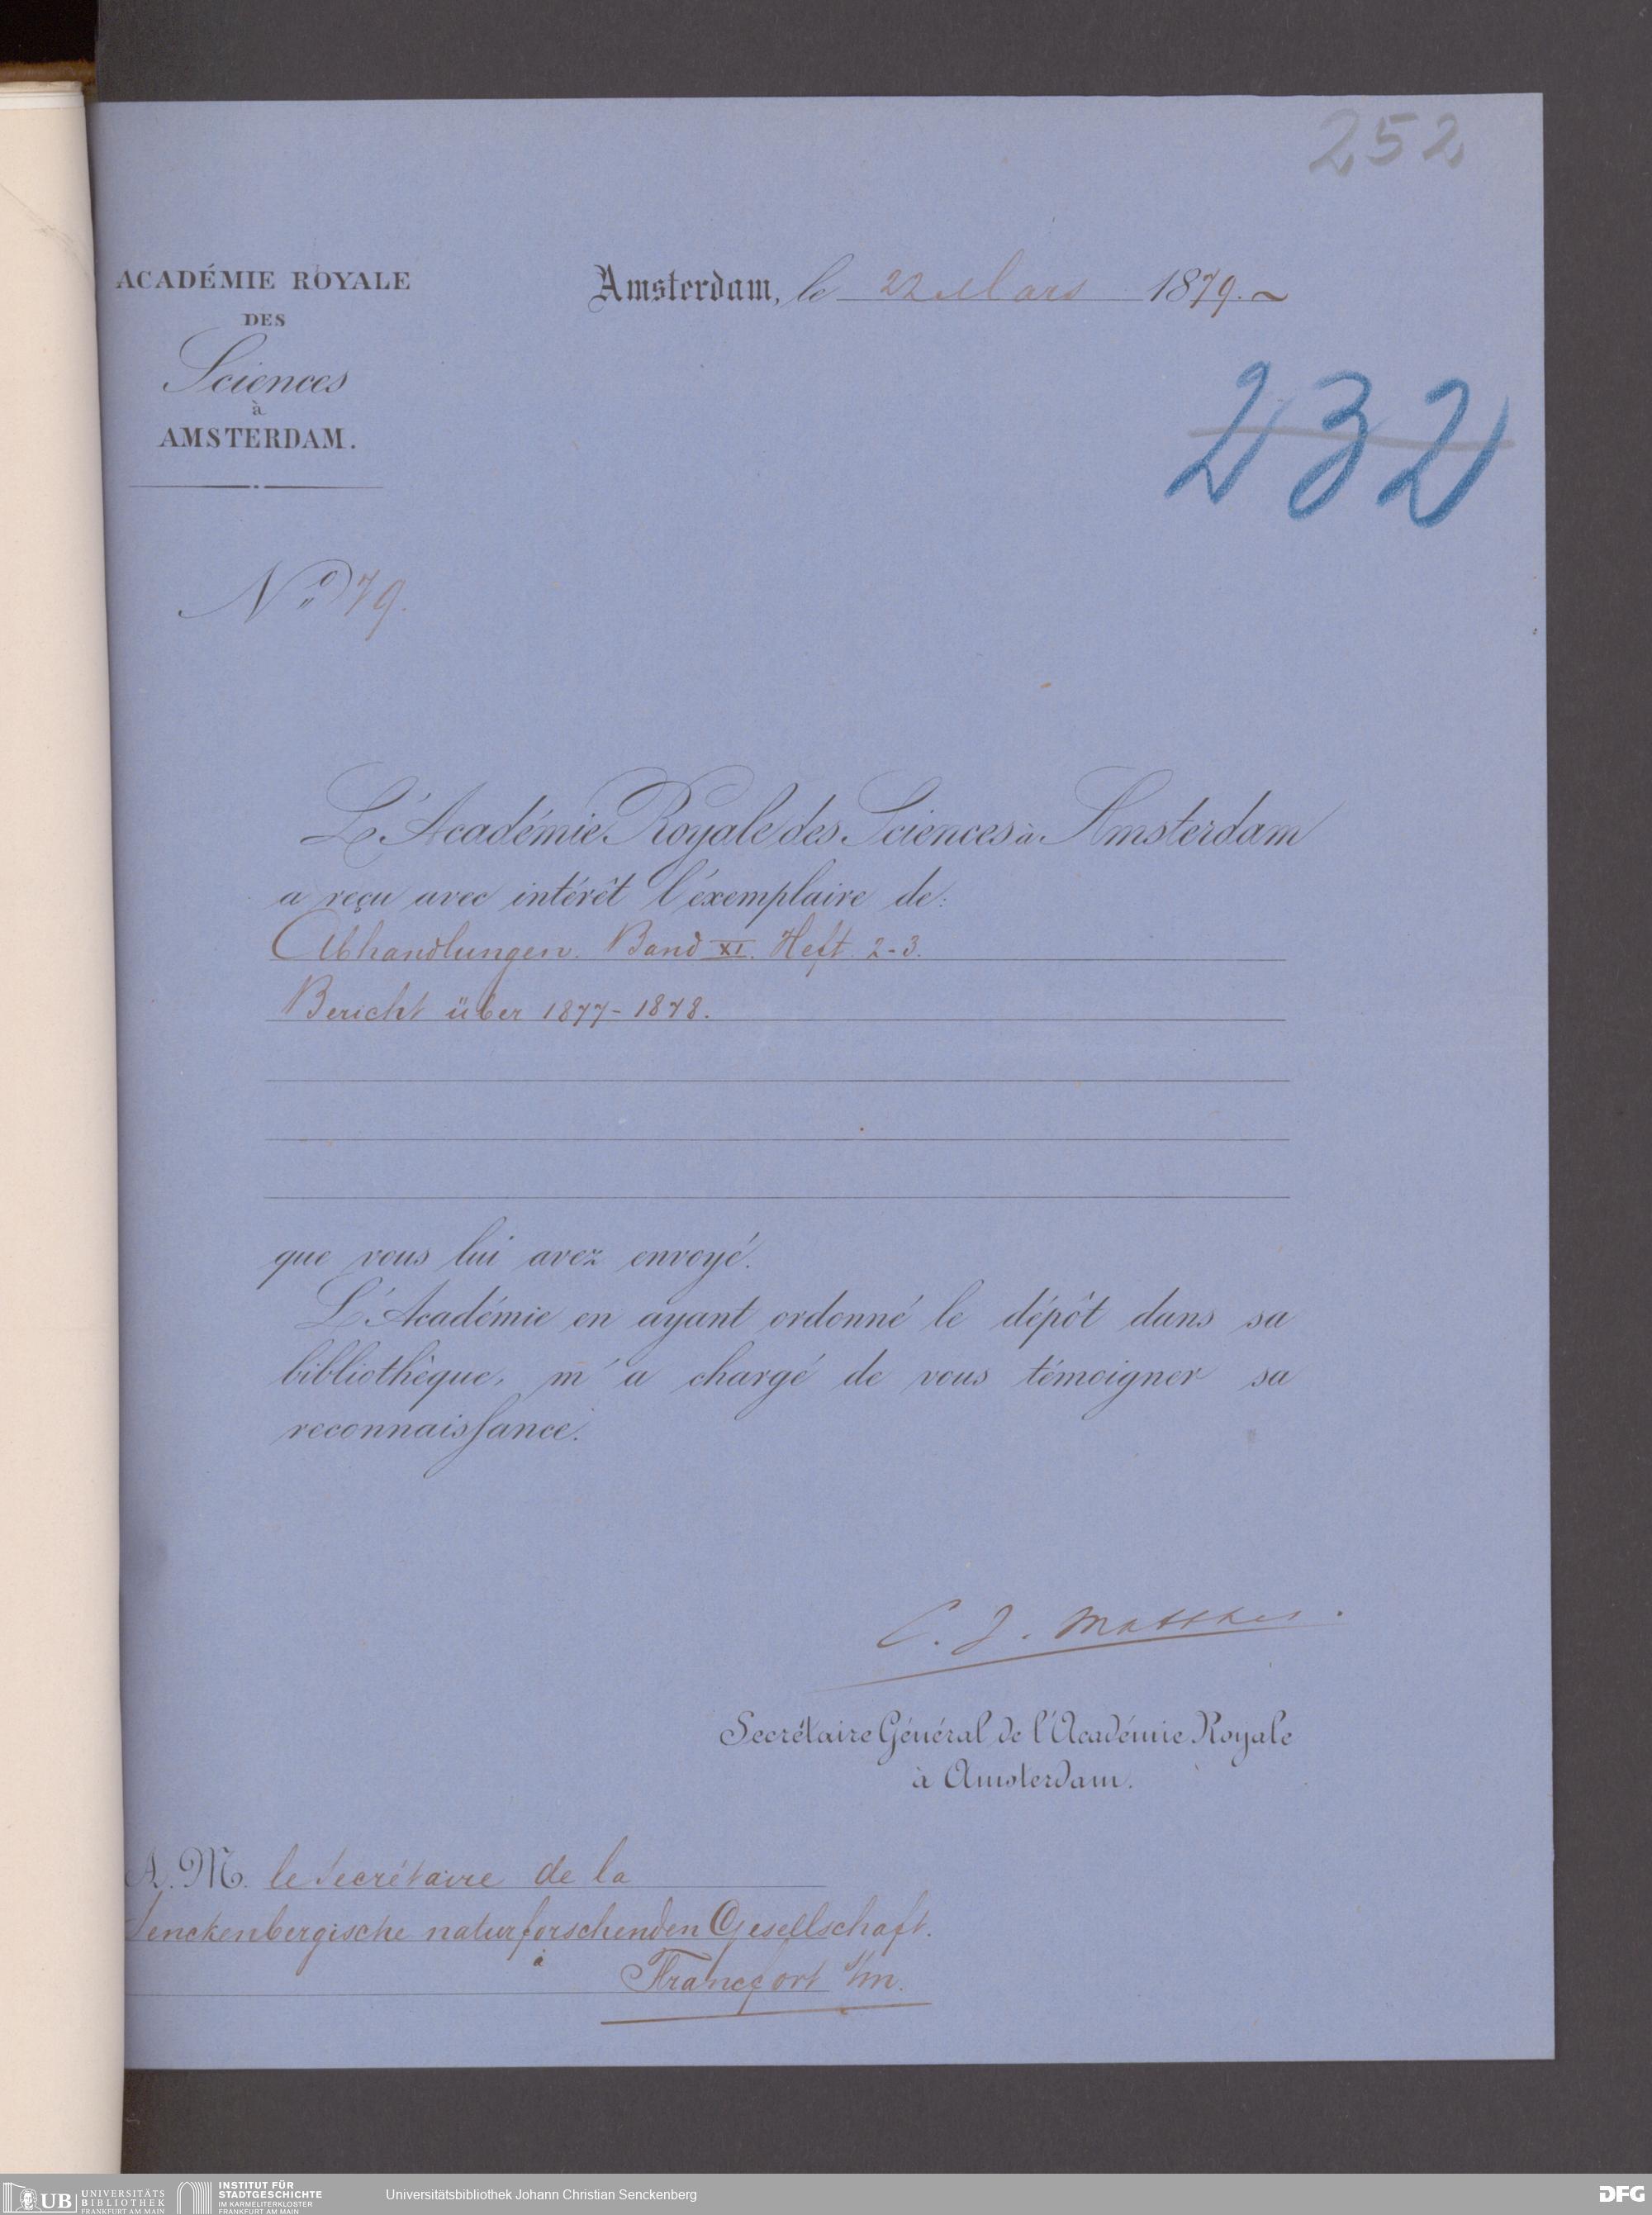 252
ACADÉMIE ROYALE
DES
Sciences
à
AMSTERDAM.
Amsterdam, le 22 Mars 1879.
232
No 79.
L'Académie Royale des Sciences à Amsterdam
a reçu avec intérêt l'éxemplaire de:
Abhandlungen. Band XI. Heft. 2-3.
Bericht über 1877-1878.
que vous lui avez envoyé.
L'Académie en ayant ordonné le dépôt dans sa
bibliothêque, m'a chargé de vous témoigner sa
reconnaissance.
C. J. Matthes.
Secrétaire Général de l'Académie Royale
à Amsterdam.
A. M. le Secrétaire de la
Senckenbergische naturforschenden Gesellschaft.
à
Francfort a/m.
UB UNIVERSITÄTS
BIBLIOTHEK
FRANKFURT AM MAIN
INSTITUT FÜR
STADTGESCHICHTE
IM KARMELITERKLOSTER
FRANKFURT AM MAIN
Universitätsbibliothek Johann Christian Senckenberg
DFG